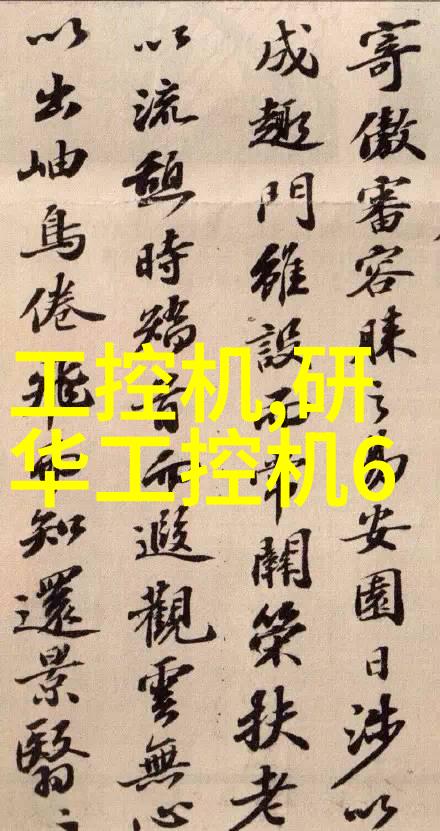 寄傲審容膝之易安園日涉以
成趣門雖設而常關策扶老
以流憩時矯首而遐觀雲無心
以出岫鳥倦飛而知還景翳
工控机,研
华工控机6